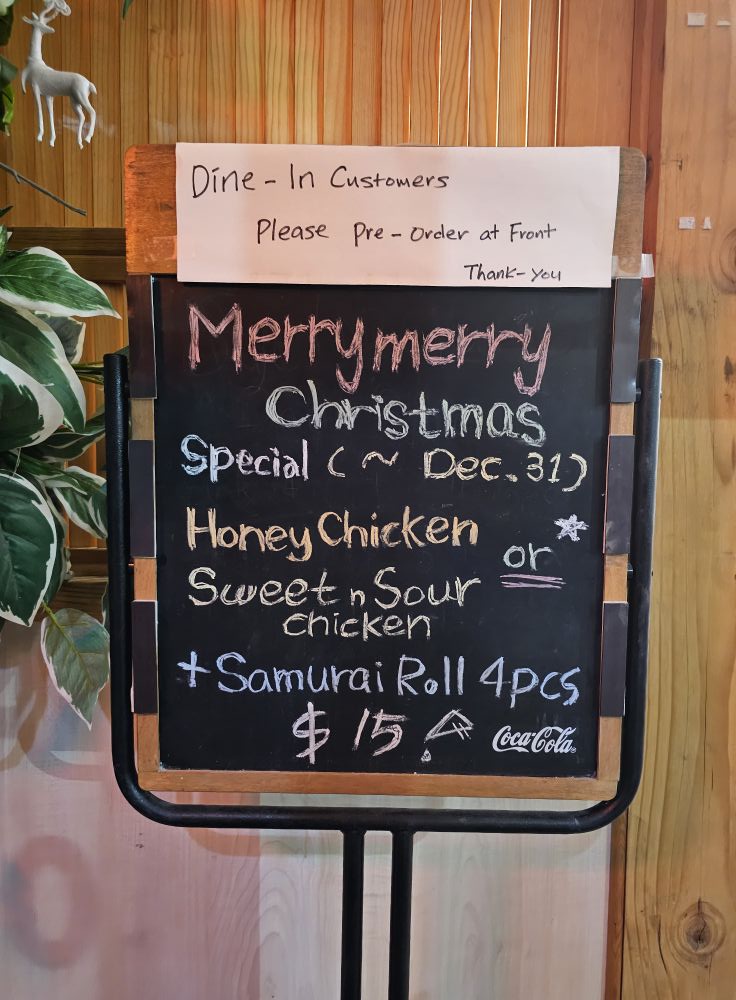 Dine - In Customers
Please Pre - Order at Front
Thank - you
Merry merry
Christmas
Special ( ~ Dec. 31)
Honey Chicken
or
Sweet n Sour
chicken
+ Samurai Roll 4pcs
$ 15
Coca-Cola